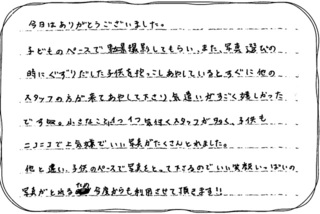 今日はありがとうございました。
子どものペースで撮影してもらい、また、写真選びの
時にぐずりだした子供を抱っこしあやしているとすぐに他の
スタッフの方が来てあやして下さり、気遣いがすごく嬉しかった
です。小さなこと1つ1つ気付くスタッフが多く、子供も
ニコニコで上機嫌でいい写真がたくさんとれました。
他と違い、子供のペースで写真をとって下さるのでいい笑顔いっぱいの
写真がとれる 今度からも利用させて頂きます!!